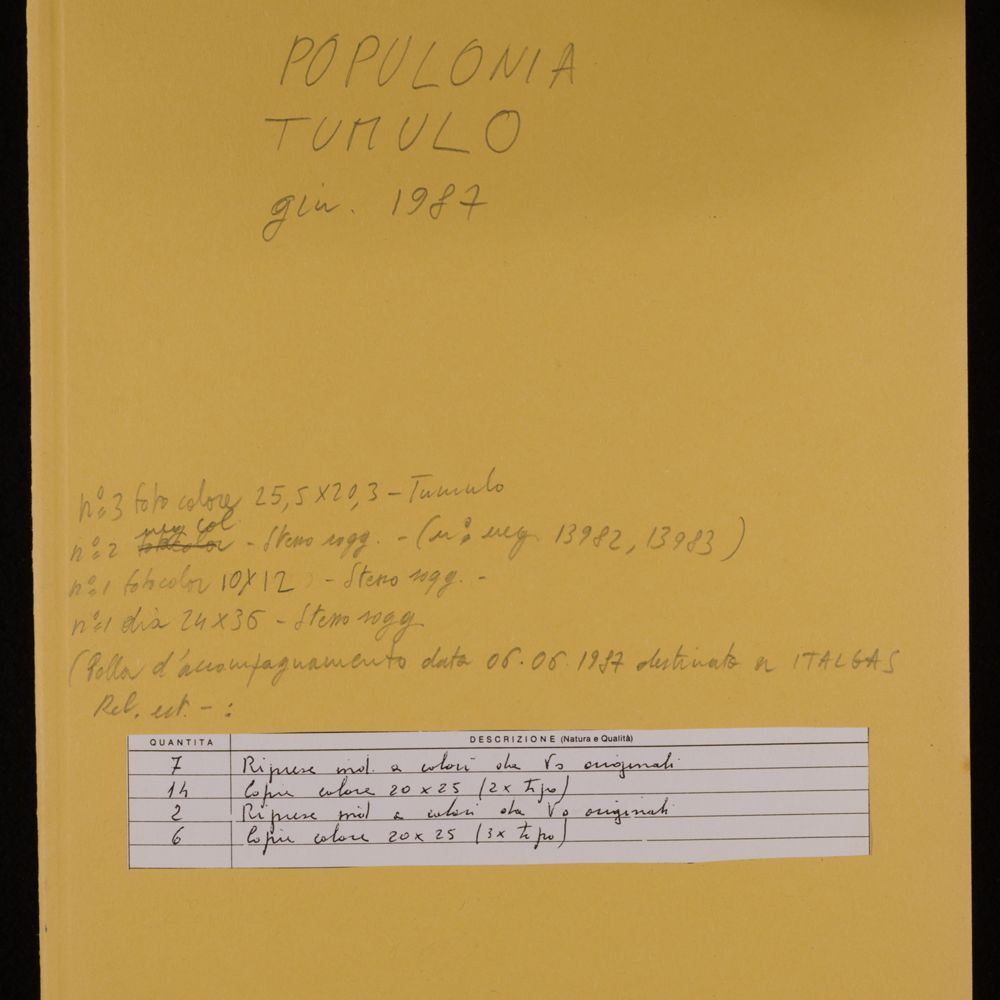 POPULONIA
TUMULO
giu. 1987
n°=3 foto colore 25,5X20,3 - Tumulo
neg col
n°=2 fotocolor - Stesso sogg. - (n° neg 13982, 13983)
n°=1 fotocolor 10X12 - Stesso sogg. -
n°=1 dia 24X36 - Stesso sogg
(Bolla d'accompagnamento data 06.06.1987 destinata a ITALGAS
Rel. est. - :
QUANTITA DESCRIZIONE (Natura e Qualità)
7 Riprese ind. a colori da Vs originali
14 Copie colore 20 x 25 (2x tipo)
2 Riprese ind a colori da Vs originali
6 Copie colore 20 x 25 (3x tipo)